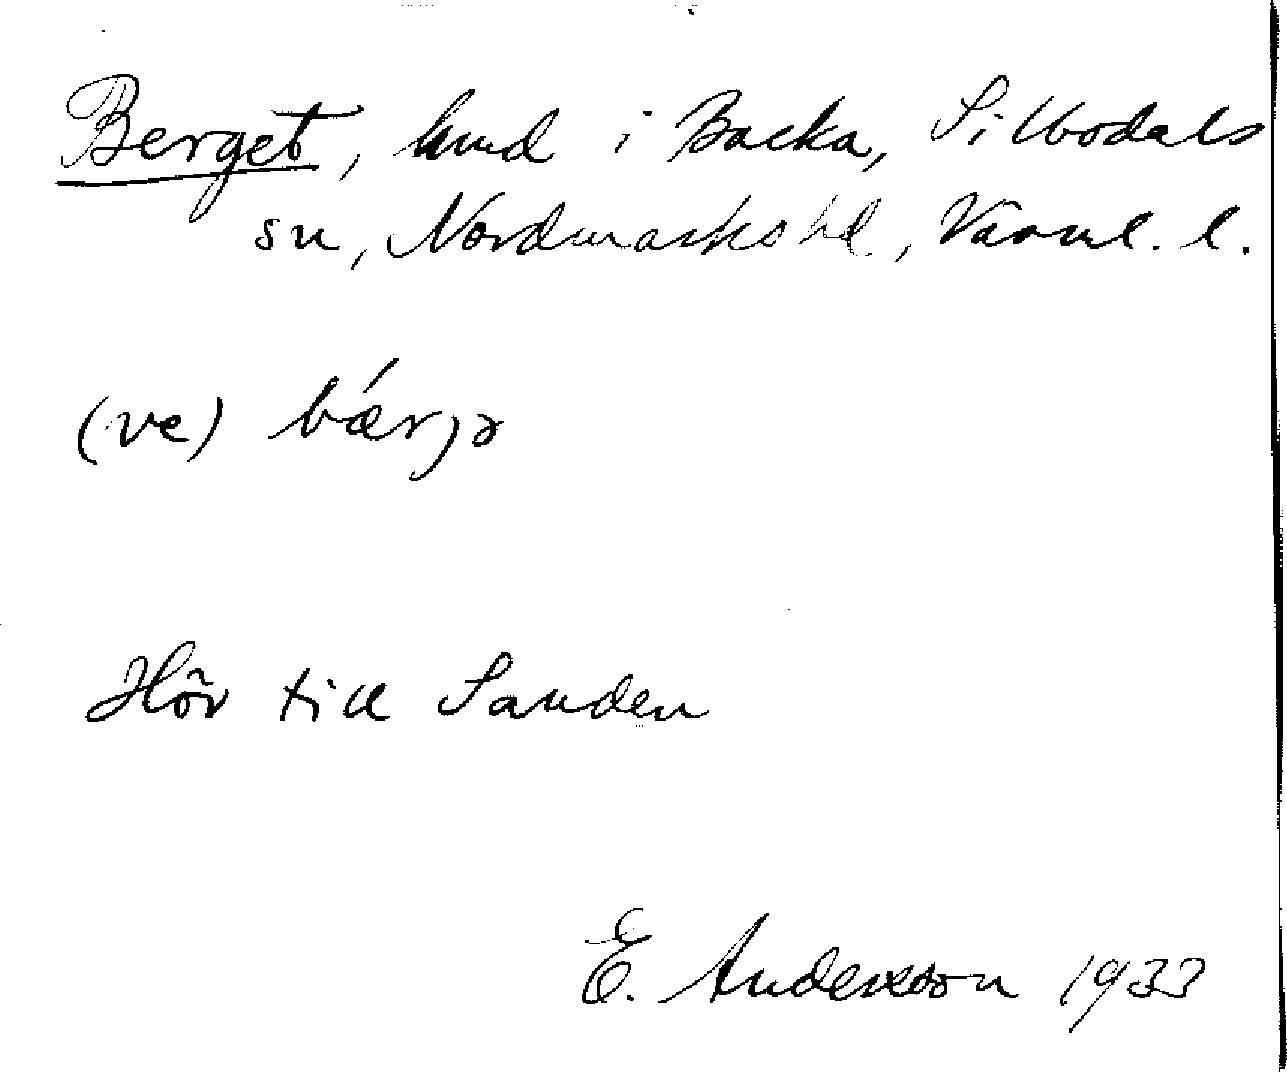 Berget, hmd i Backa, Sillbodals
sn, Nordmarks hd, Värml. l.
(ve) bǽrjə
Hör till Sanden
E. Andersson 1933